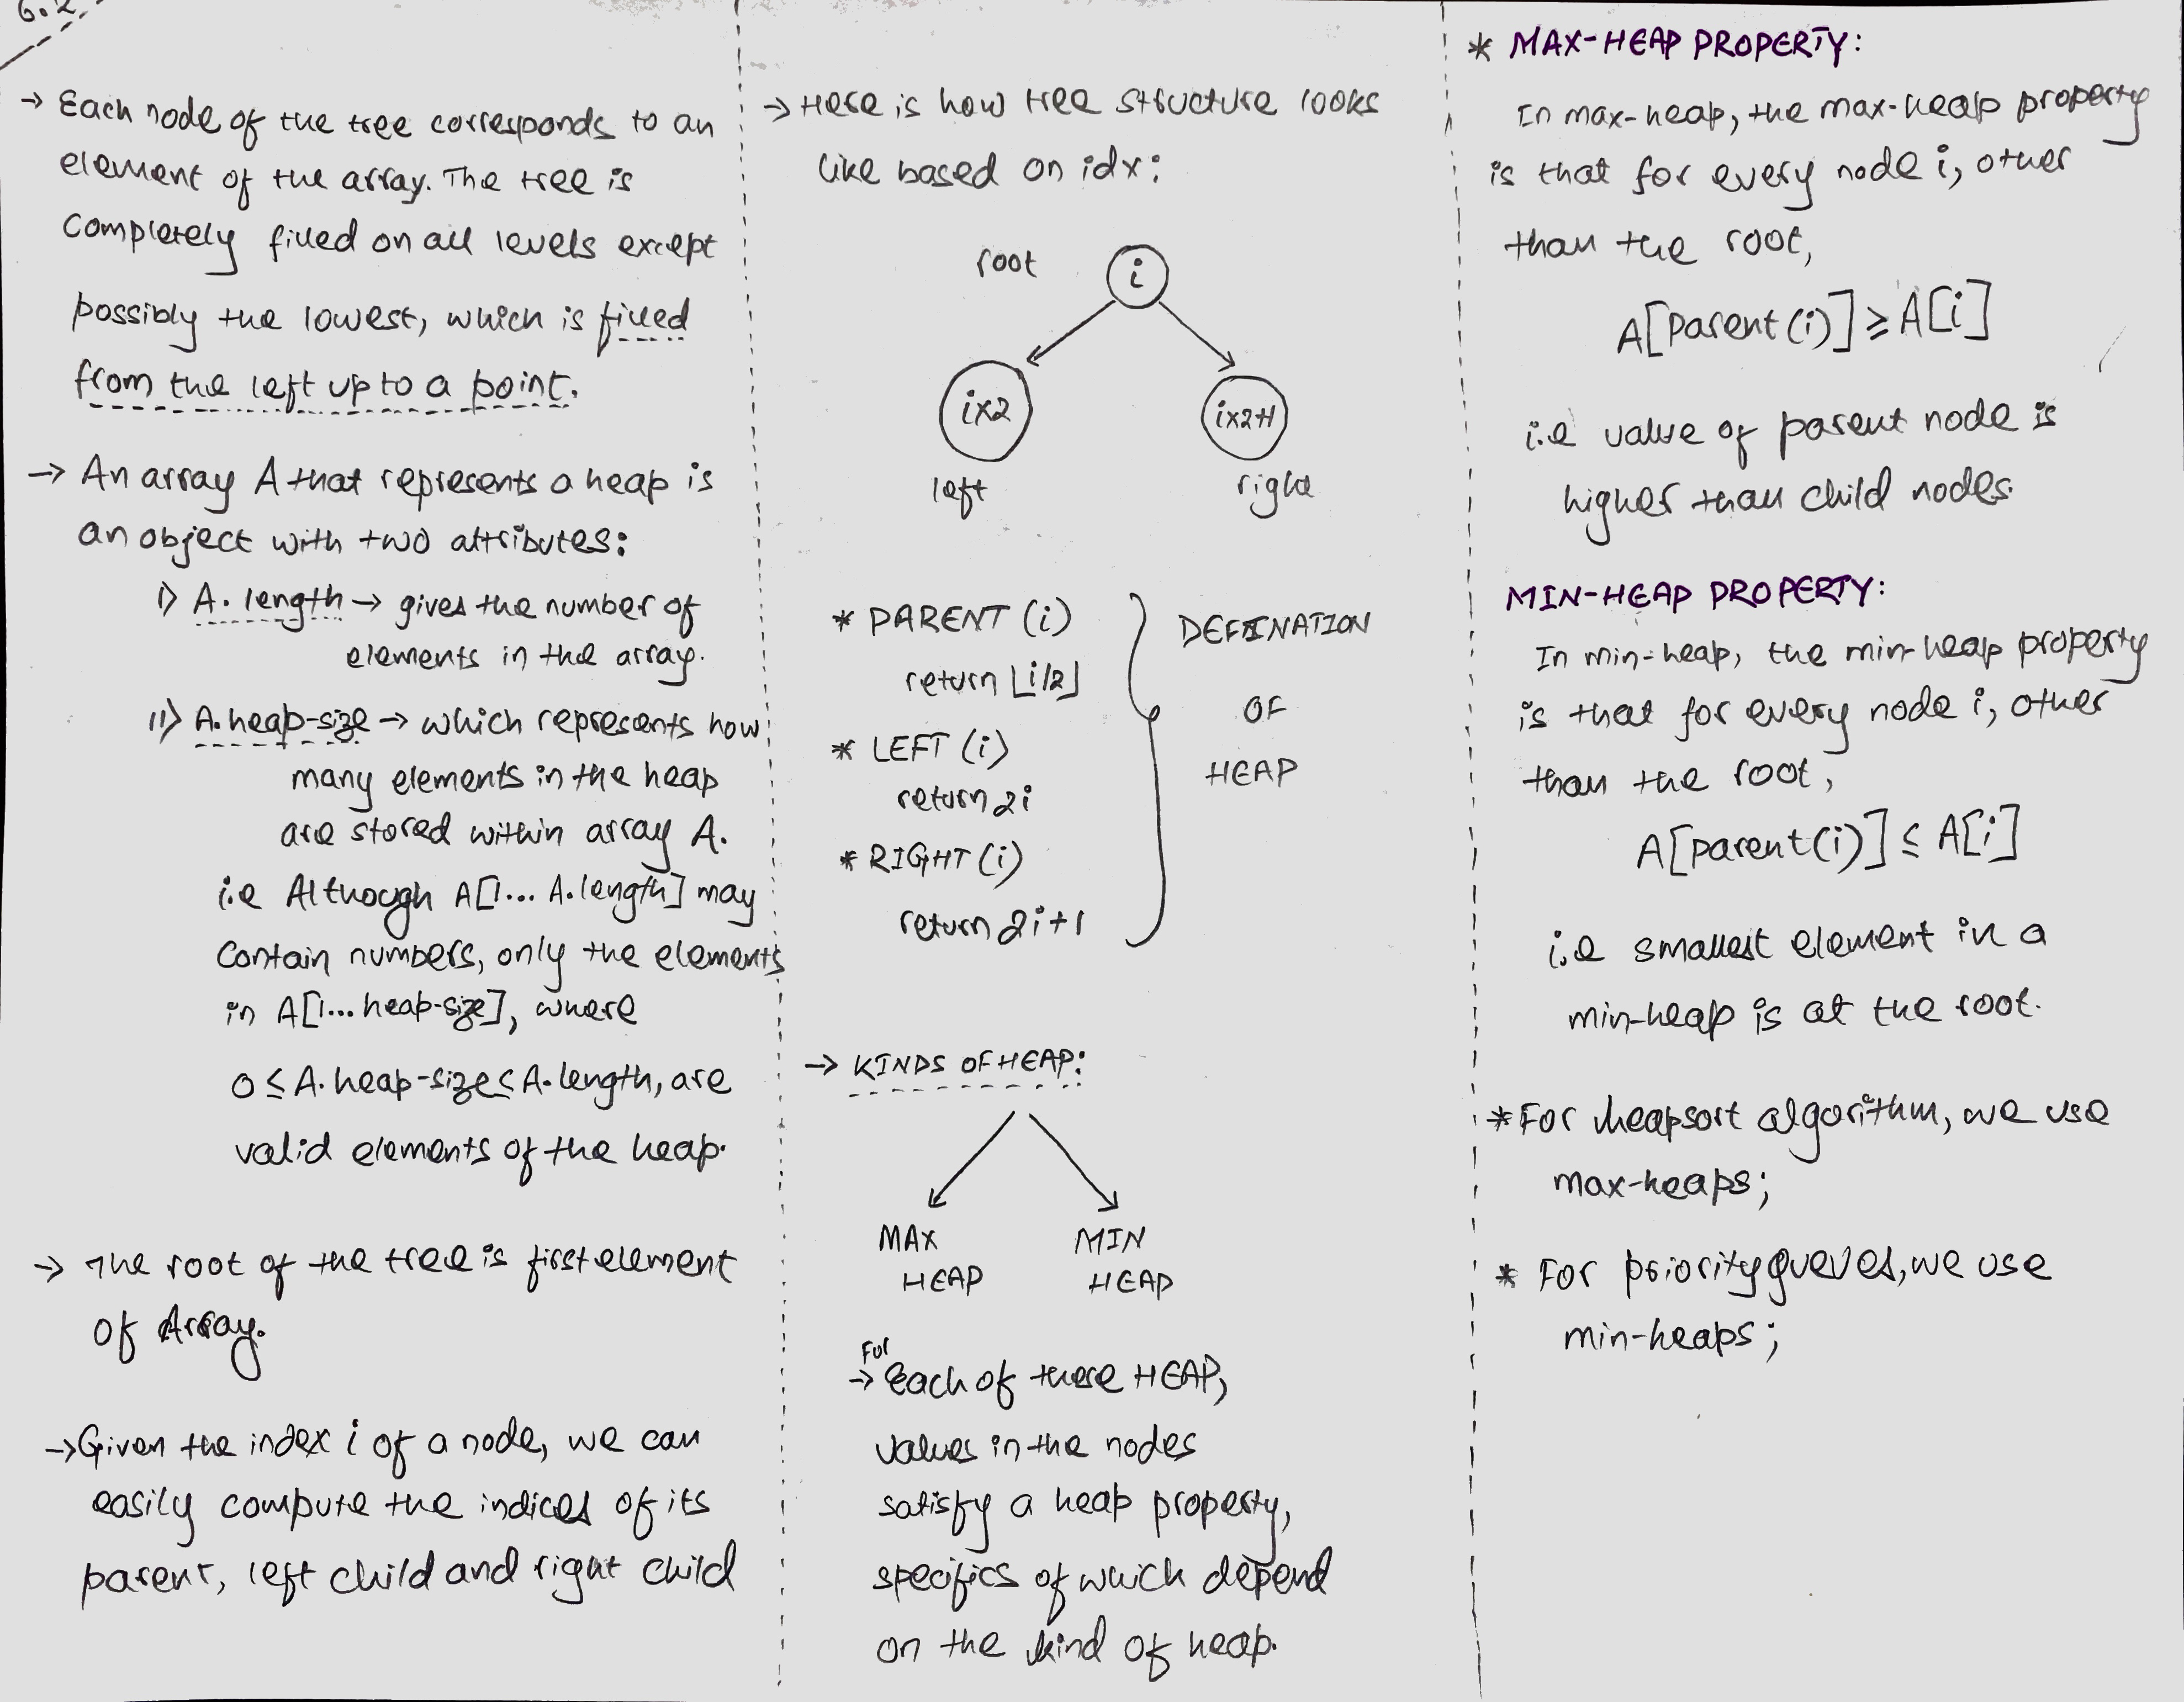 6.2
→ Each node of the tree corresponds to an
element of the array. The tree is
completely filled on all levels except
possibly the lowest, which is filled
from the left up to a point.
→ An array A that represents a heap is
an object with two attributes:
i) A.length → gives the number of
elements in the array.
ii) A.heap-size → which represents how
many elements in the heap
are stored within array A.
i.e Although A[1... A.length] may
contain numbers, only the elements
in A[1... heap-size], where
0 ≤ A.heap-size ≤ A.length, are
valid elements of the heap.
→ The root of the tree is first element
of Array.
→ Given the index i of a node, we can
easily compute the indices of its
parent, left child and right child
→ Here is how tree structure looks
like based on idx:
root
i
ix2
ix2+1
left
right
* PARENT (i)
return ⌊i/2⌋
* LEFT (i)
return 2i
* RIGHT (i)
return 2i+1
DEFINATION
OF
HEAP
→ KINDS OF HEAP:
MAX
HEAP
MIN
HEAP
For
→ Each of these HEAP,
values in the nodes
satisfy a heap property,
specifics of which depend
on the kind of heap.
* MAX-HEAP PROPERTY:
In max-heap, the max-heap property
is that for every node i, other
than the root,
A[Parent(i)] ≥ A[i]
i.e value of parent node is
higher than child nodes.
MIN-HEAP PROPERTY:
In min-heap, the min-heap property
is that for every node i, other
than the root,
A[parent(i)] ≤ A[i]
i.e smallest element in a
min-heap is at the root.
* For heapsort algorithm, we use
max-heaps;
* For priority queues, we use
min-heaps;